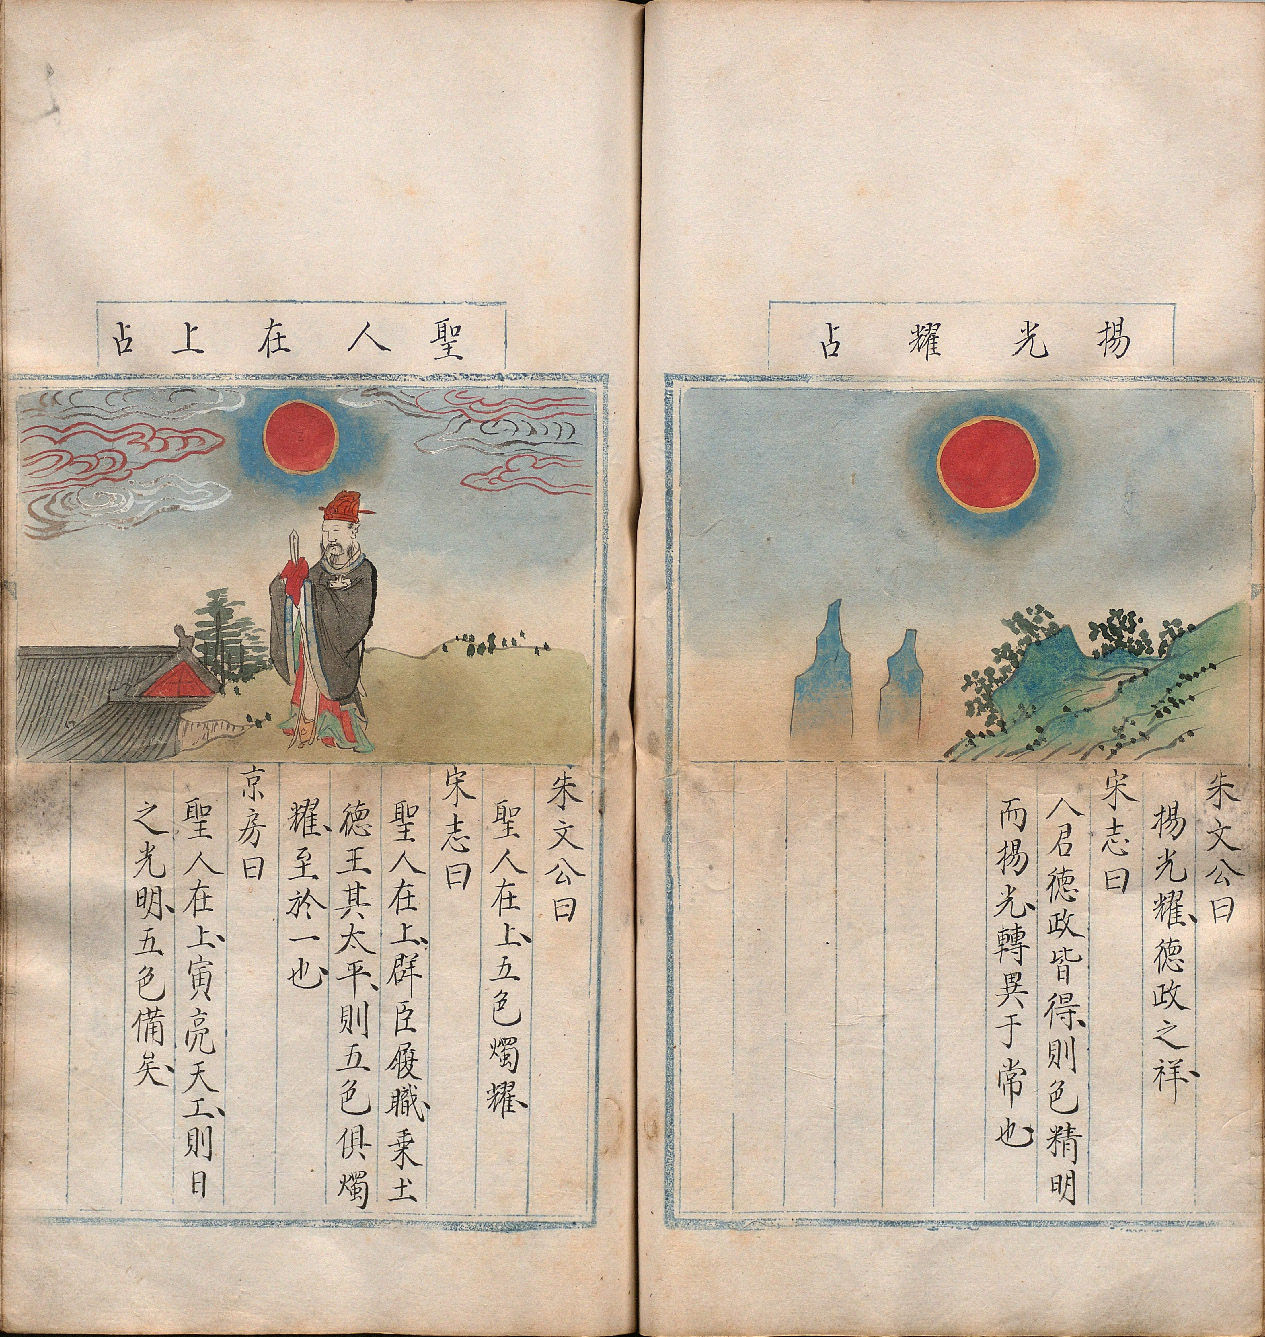 揚光耀占
朱文公曰
揚光耀、德政之祥、
宋志曰
人君德政皆得、則色精明
而揚光、轉異于常也
聖人在上占
朱文公曰
聖人在上、五色燭耀、
宋志曰
聖人在上、群臣履職、乗土
德王其太平、則五色俱燭
耀、至於一也
京房曰
聖人在上、寅亮天工、則日
之光明、五色備矣、